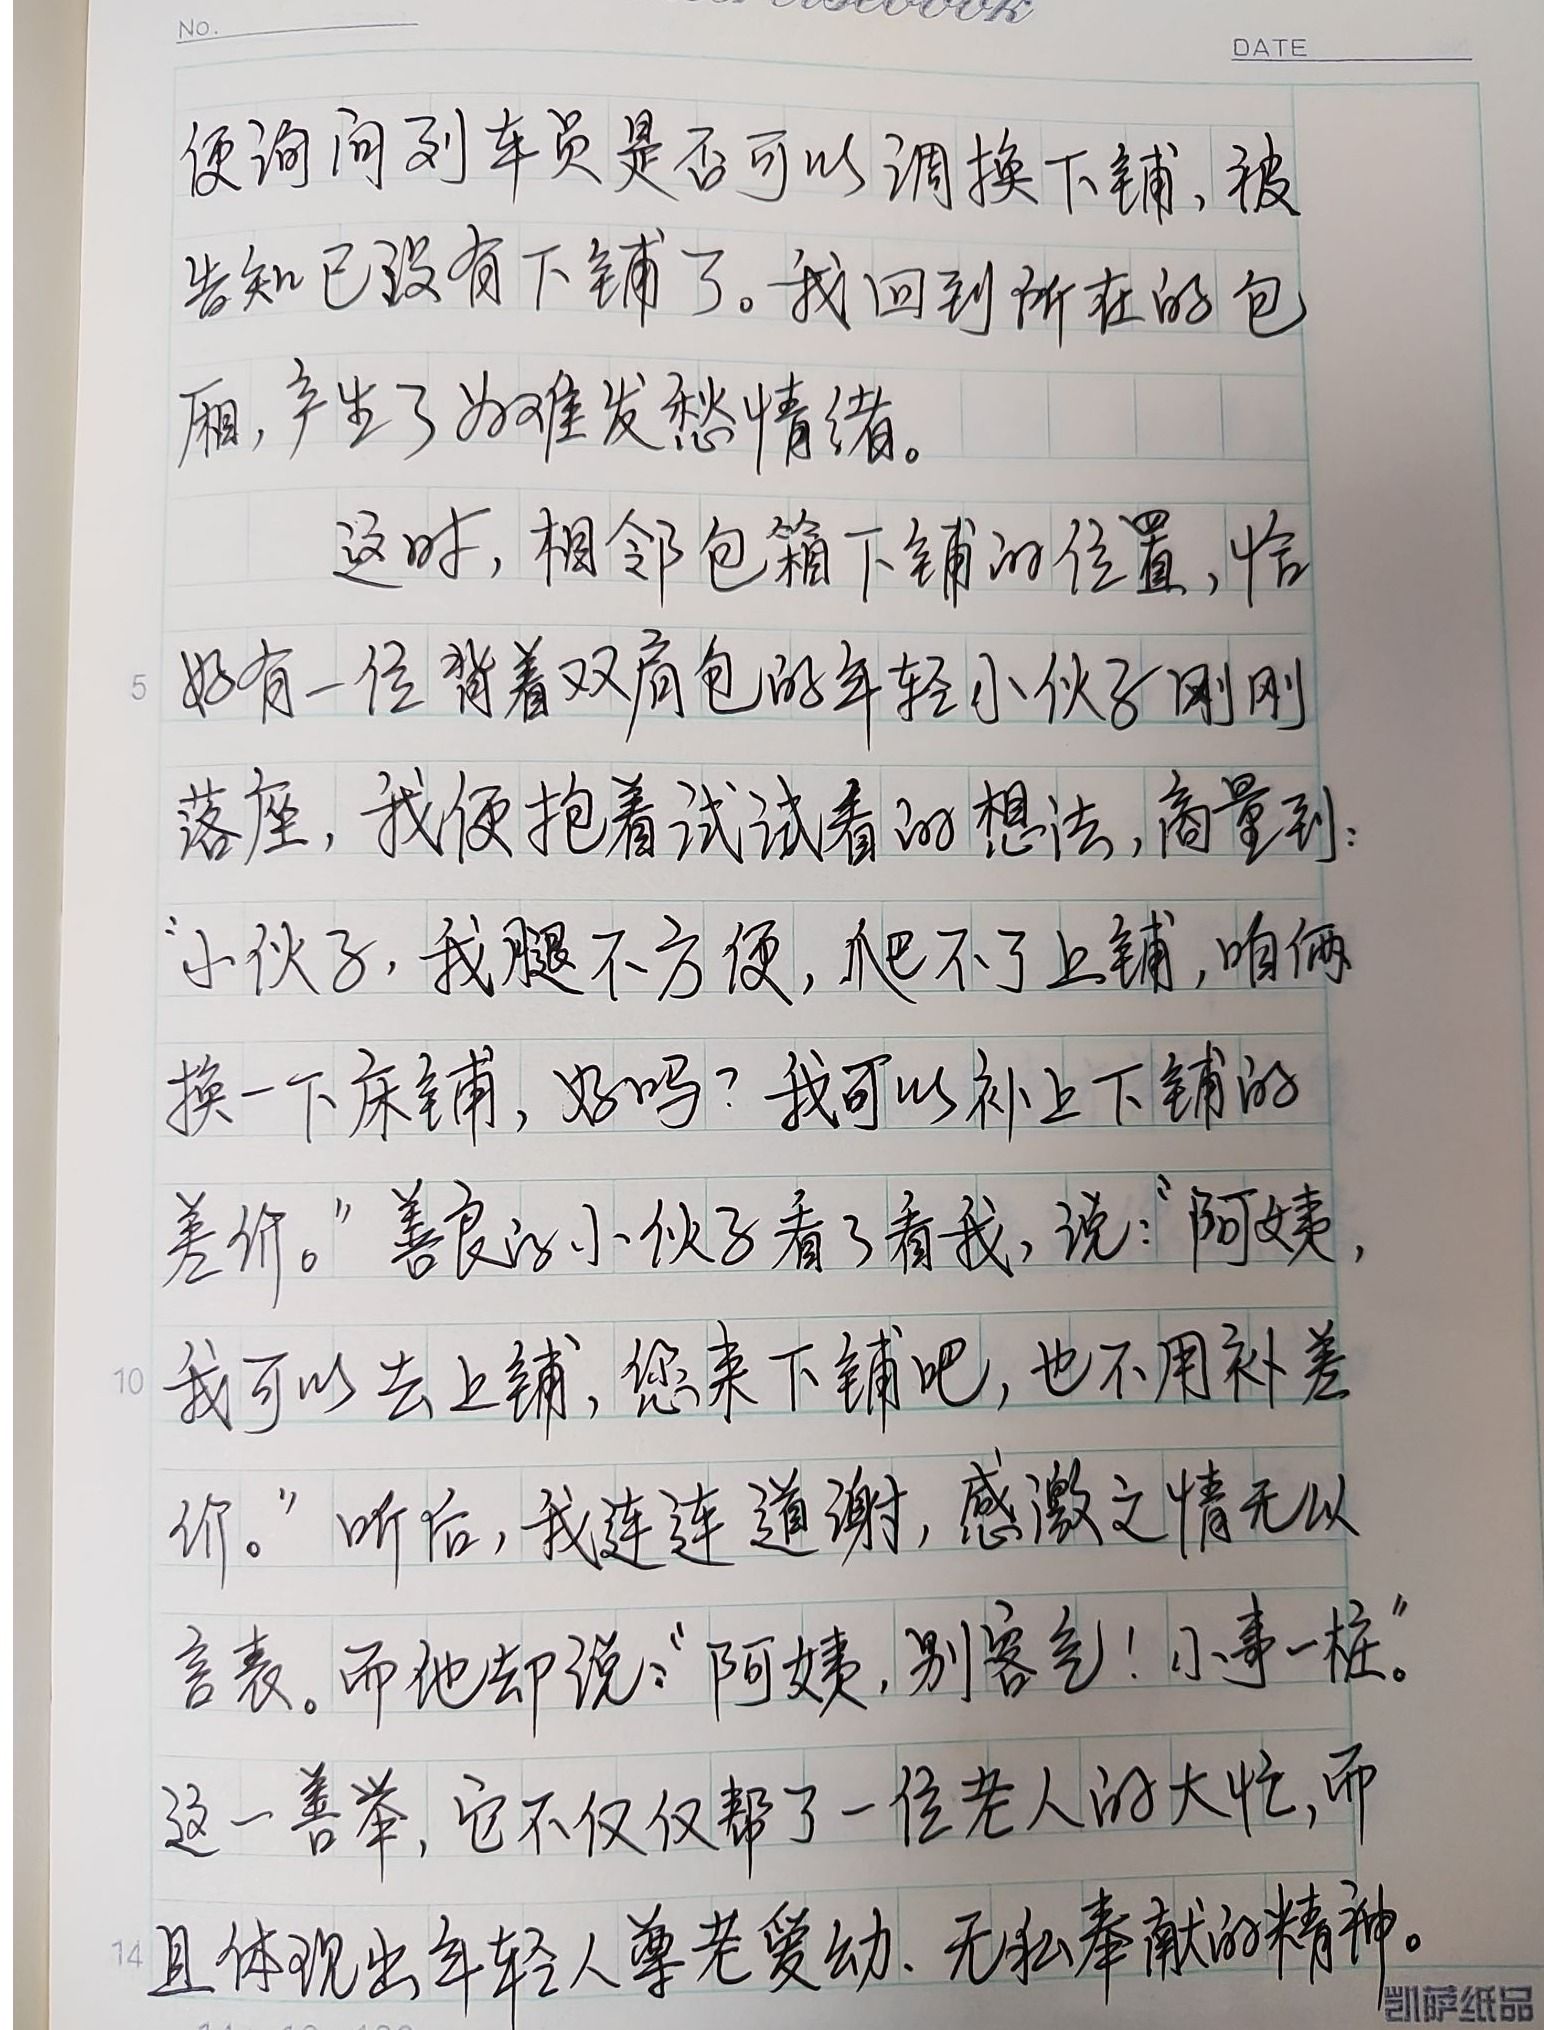 NO.
DATE
便询问列车员是否可以调换下铺,被
告知已没有下铺了。我回到所在的包
厢,产生了为难发愁情绪。
这时,相邻包箱下铺的位置,恰
5 好有一位背着双肩包的年轻小伙子刚刚
落座,我便抱着试试看的想法,商量到:
“小伙子,我腿不方便,爬不了上铺,咱俩
换一下床铺,好吗?我可以补上下铺的
差价。”善良的小伙子看了看我,说:“阿姨,
10 我可以去上铺,您来下铺吧,也不用补差
价。”听后,我连连道谢,感激之情无以
言表。而他却说:“阿姨,别客气!小事一桩。”
这一善举,它不仅仅帮了一位老人的大忙,而
14 且体现出年轻人尊老爱幼、无私奉献的精神。
凯萨纸品